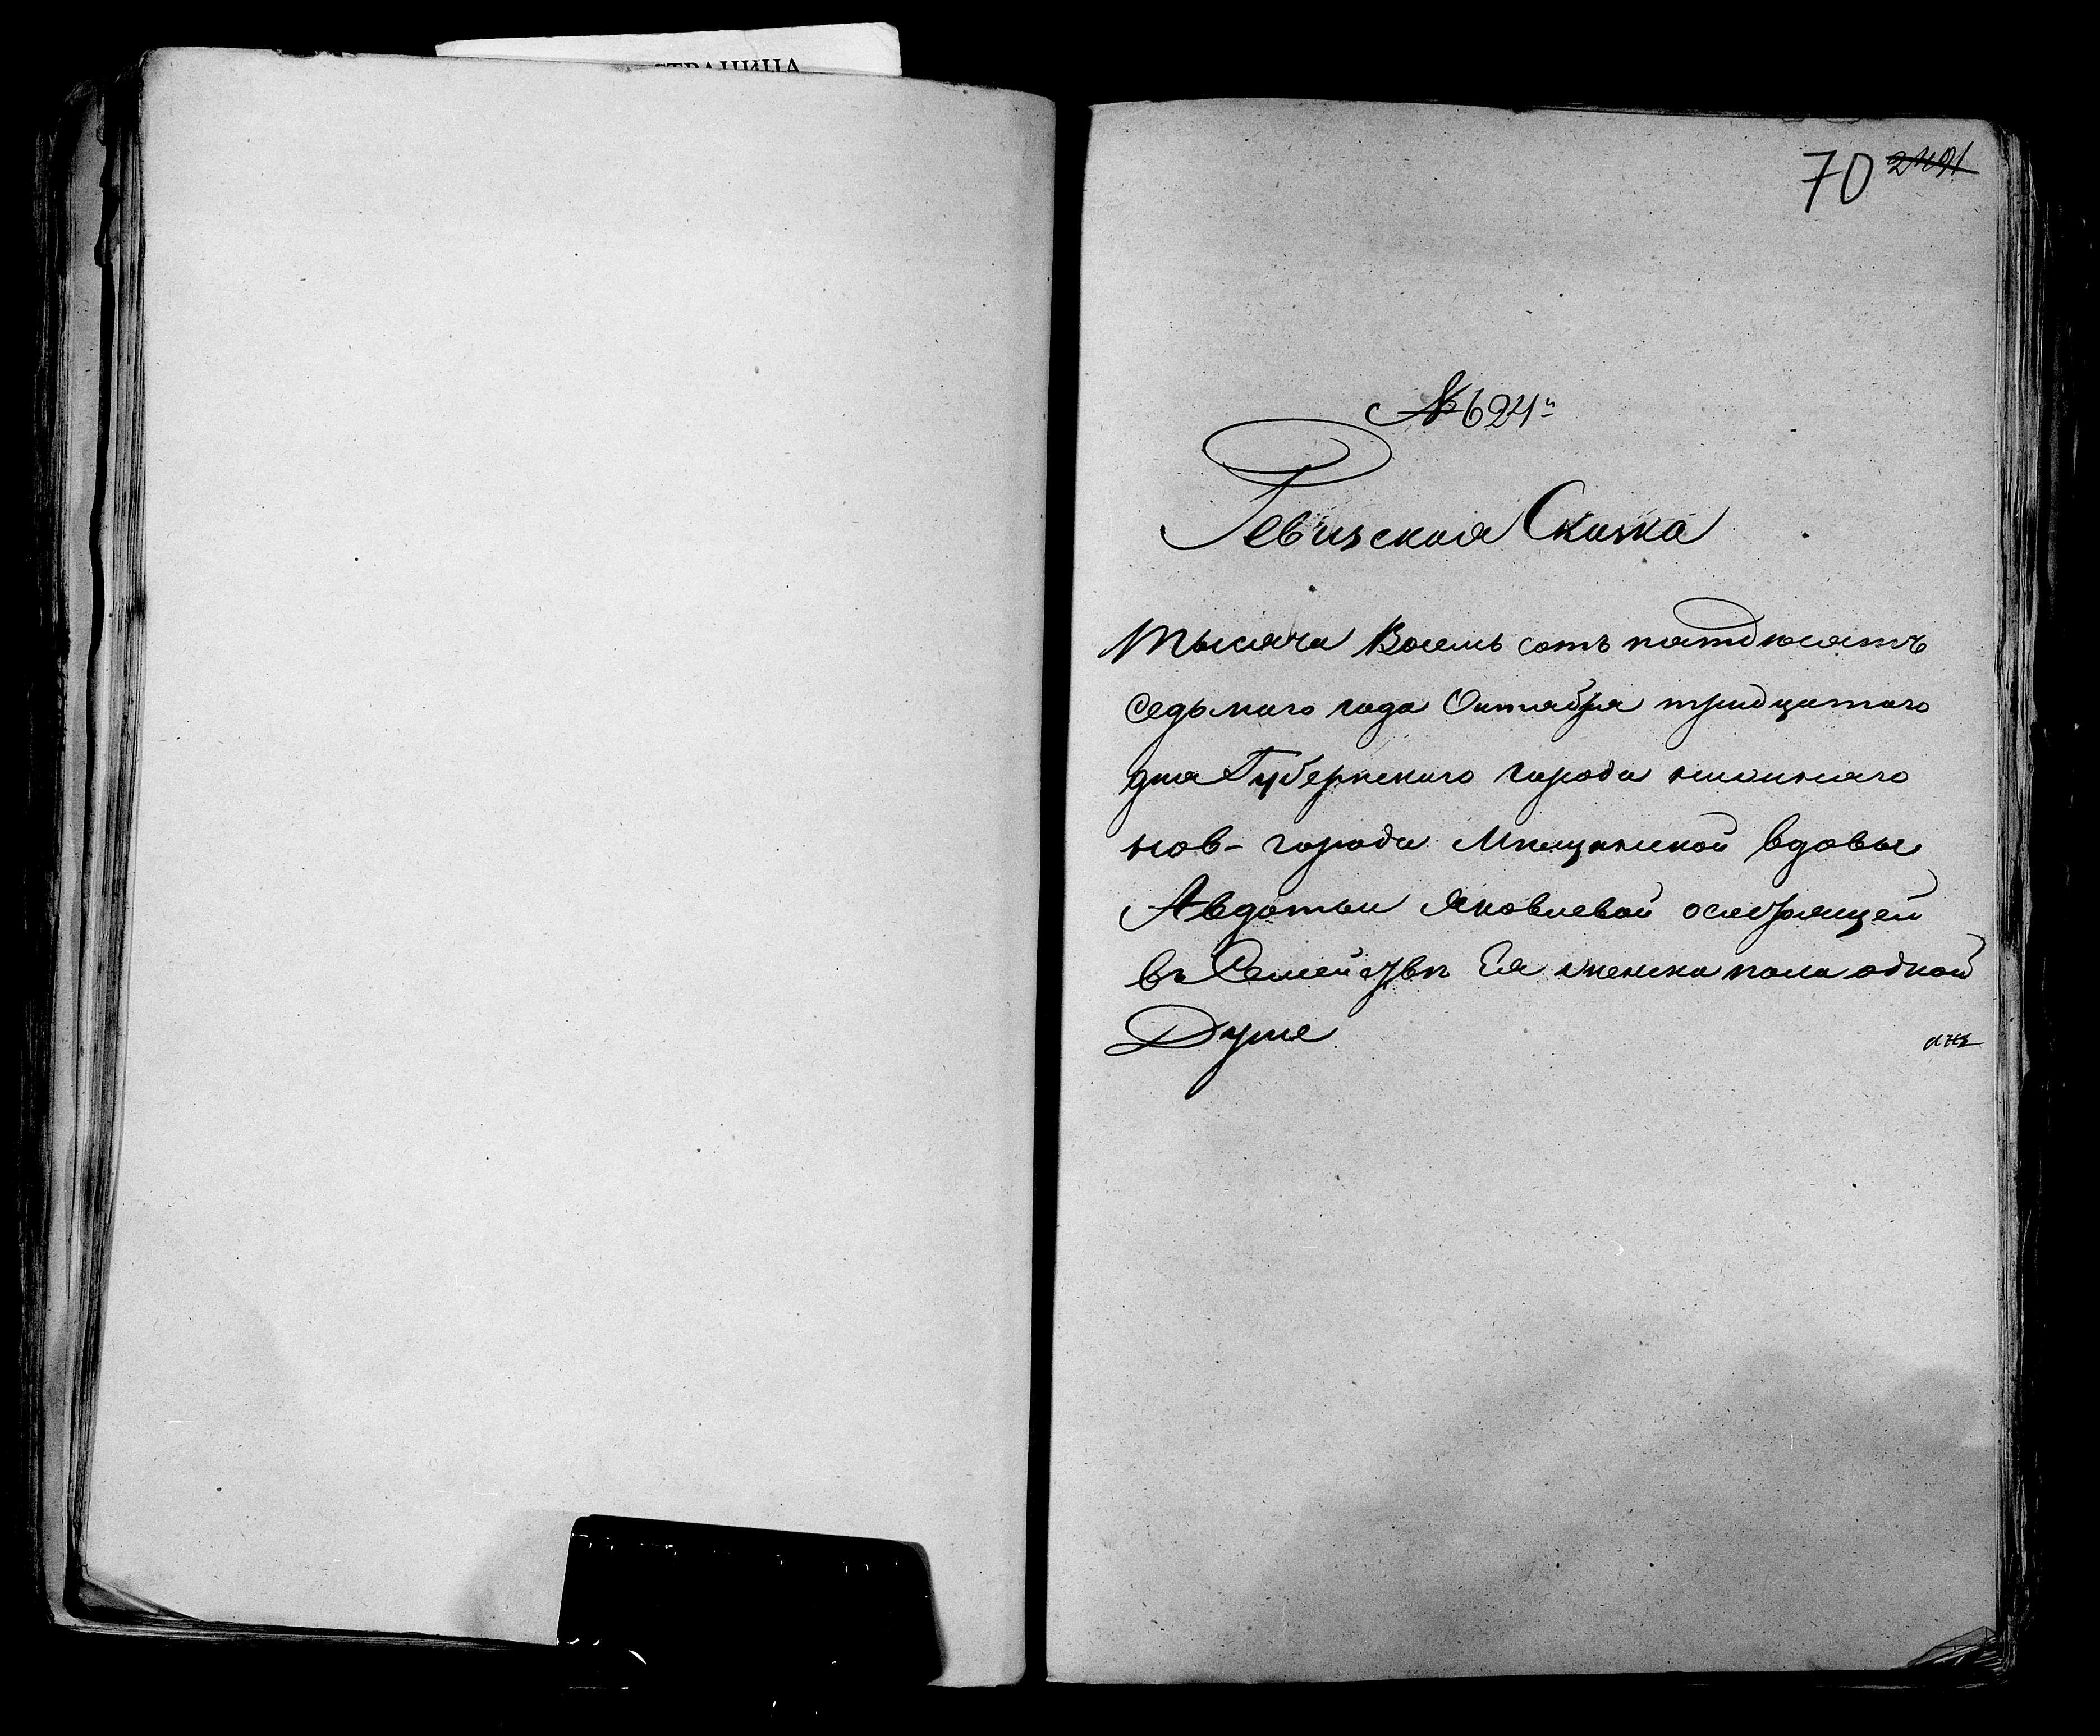 СТРАНИЦА
70 2401
№ 624й
Ревизская Сказка
Тысяча Восемь сотъ пятдесятъ
седьмаго года Октября тридцатаго
дня Губернскаго города нижняго
нов- города Мещанской вдовы
Авдотьи Яковлевой
въ Семействѣ Ея женска пола одной
Душе